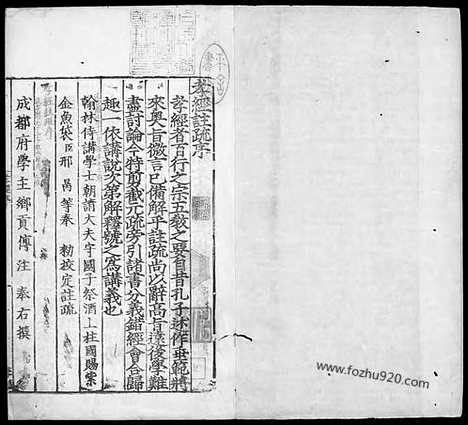 孝經註疏序
孝經者百行之宗五教之要自昔孔子述作垂範將
來奥旨微言已備解乎註疏尚以辭高旨遠後學難
盡討論今特剪截元疏旁引諸書分義錯經會合歸
趣一依講說次第解釋號之為講義也
翰林侍講學士朝請大夫守國子祭酒上柱國賜紫
金魚袋臣邢昺等奉 勑校定註疏
成都府學主鄉貢傅注 奉右撰
www.fozhu920.com